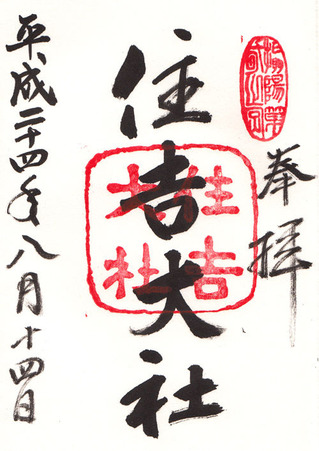 奉拝
住吉大社
住吉
大社
平成二十四年八月十四日